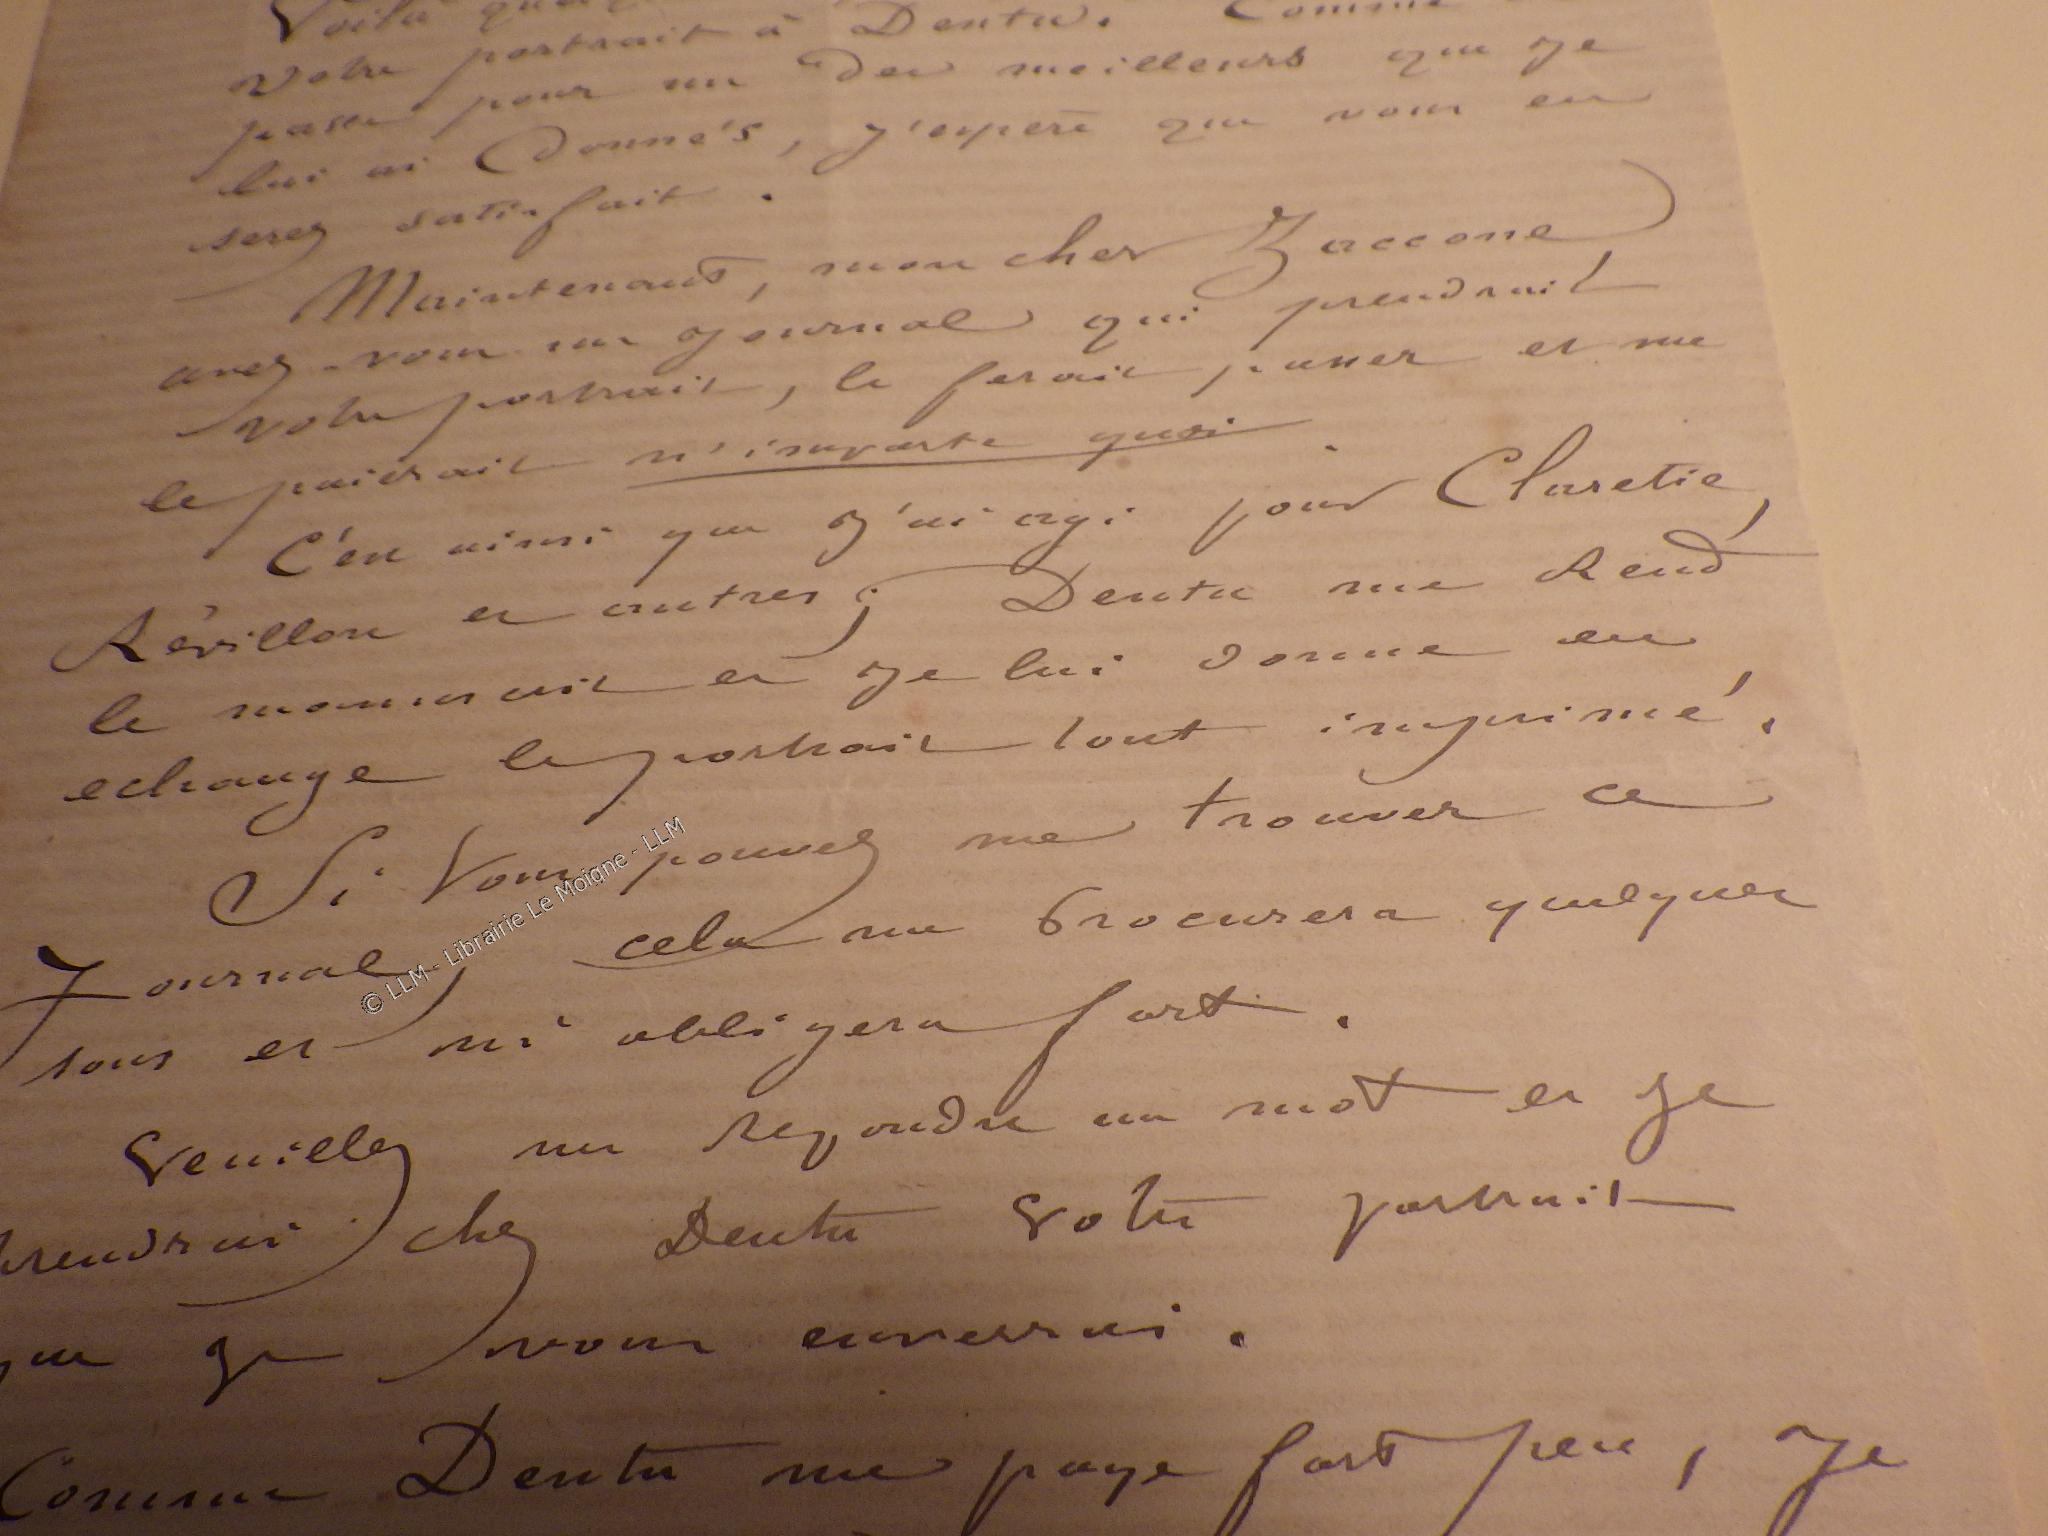 Voilà
votre portrait à Dentu. Comme
passe pour un des meilleurs que je
lui ai donnés, j'espère que vous en
serez satisfait.
Maintenant, mon cher Zaccone
avez-vous un journal qui prendrait
votre portrait, le ferait passer et me
le paierait n'importe quoi
C'est ainsi que j'ai agi pour Claretie,
Révillon et autres; Dentu me rend
le manuscrit et je lui donne en
echange le portrait tout imprimé.
Si vous pouvez me trouver ce
Journal, cela me procurera quelques
sous et m'obligera fort.
Veuillez me repondre un mot et je
prendrai chez Dentu votre portrait
que je vous enverrai.
Comme Dentu me paye fort peu, je
© LLM - Librairie Le Moigne - LLM